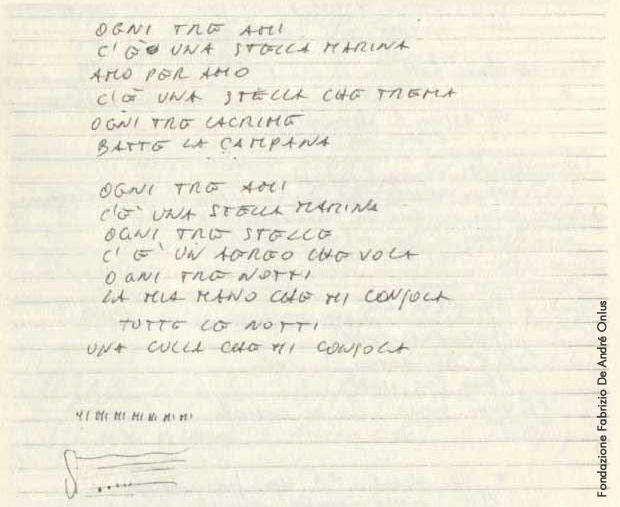 OGNI TRE AMI
C'È UNA STELLA MARINA
AMO PER AMO
C'È UNA STELLA CHE TREMA
OGNI TRE LACRIME
BATTE LA CAMPANA
OGNI TRE AMI
C'È UNA STELLA MARINA
OGNI TRE STELLE
C'È UN AEREO CHE VOLA
OGNI TRE NOTTI
LA MIA MANO CHE MI CONSOLA
TUTTE LE NOTTI
UNA CULLA CHE MI CONSOLA
Fondazione Fabrizio De André Onlus